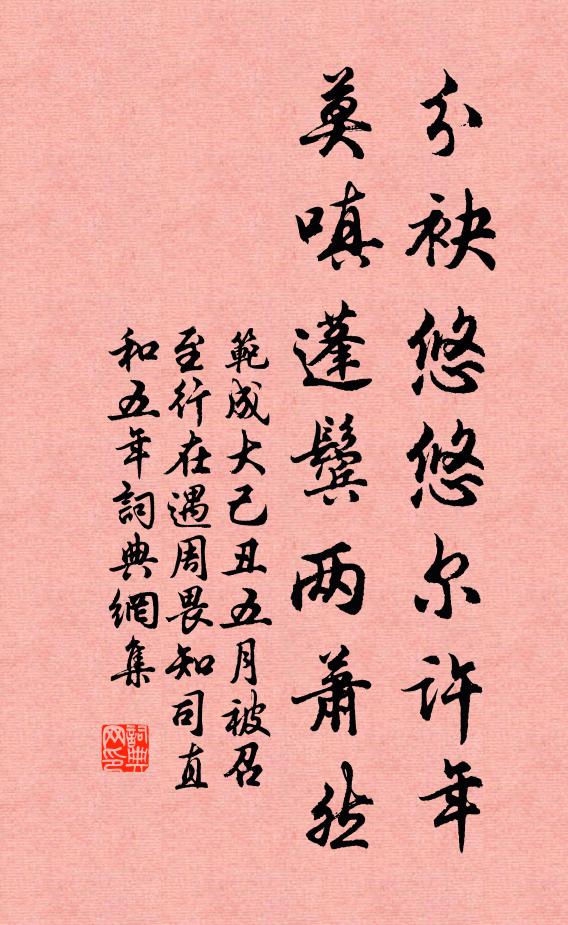 分袂悠悠尔许年
莫嗔蓬鬓两萧然
範成大己丑五月被召
至行在遇周畏知司直
和五年詞典網集
詞典网印